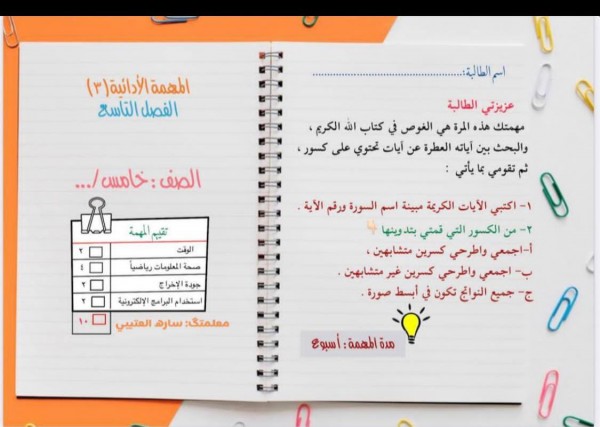 اسم الطالبة:
عزيزتي الطالبة
مهمتك هذه المرة هي الغوص في كتاب الله الكريم ،
والبحث بين آياته العطرة عن آيات تحتوي على كسور ،
ثم تقومي بما يأتي :
١- اكتبي الآيات الكريمة مبينة اسم السورة ورقم الآية .
٢- من الكسور التي قمتي بتدوينها
أ-اجمعي واطرحي كسرين متشابهين ،
ب- اجمعي واطرحي كسرين غير متشابهين .
ج- جميع النواتج تكون في أبسط صورة .
مدة المهمة : أسبوع
المهمة الأدائية (٣)
الفصل التاسع
الصف : خامس /...
تقييم المهمة
الوقت ٢
صحة المعلومات رياضياً ٤
جودة الإخراج ٢
استخدام البرامج الإلكترونية ٢
١٠
معلمتك: ساره العتيبي